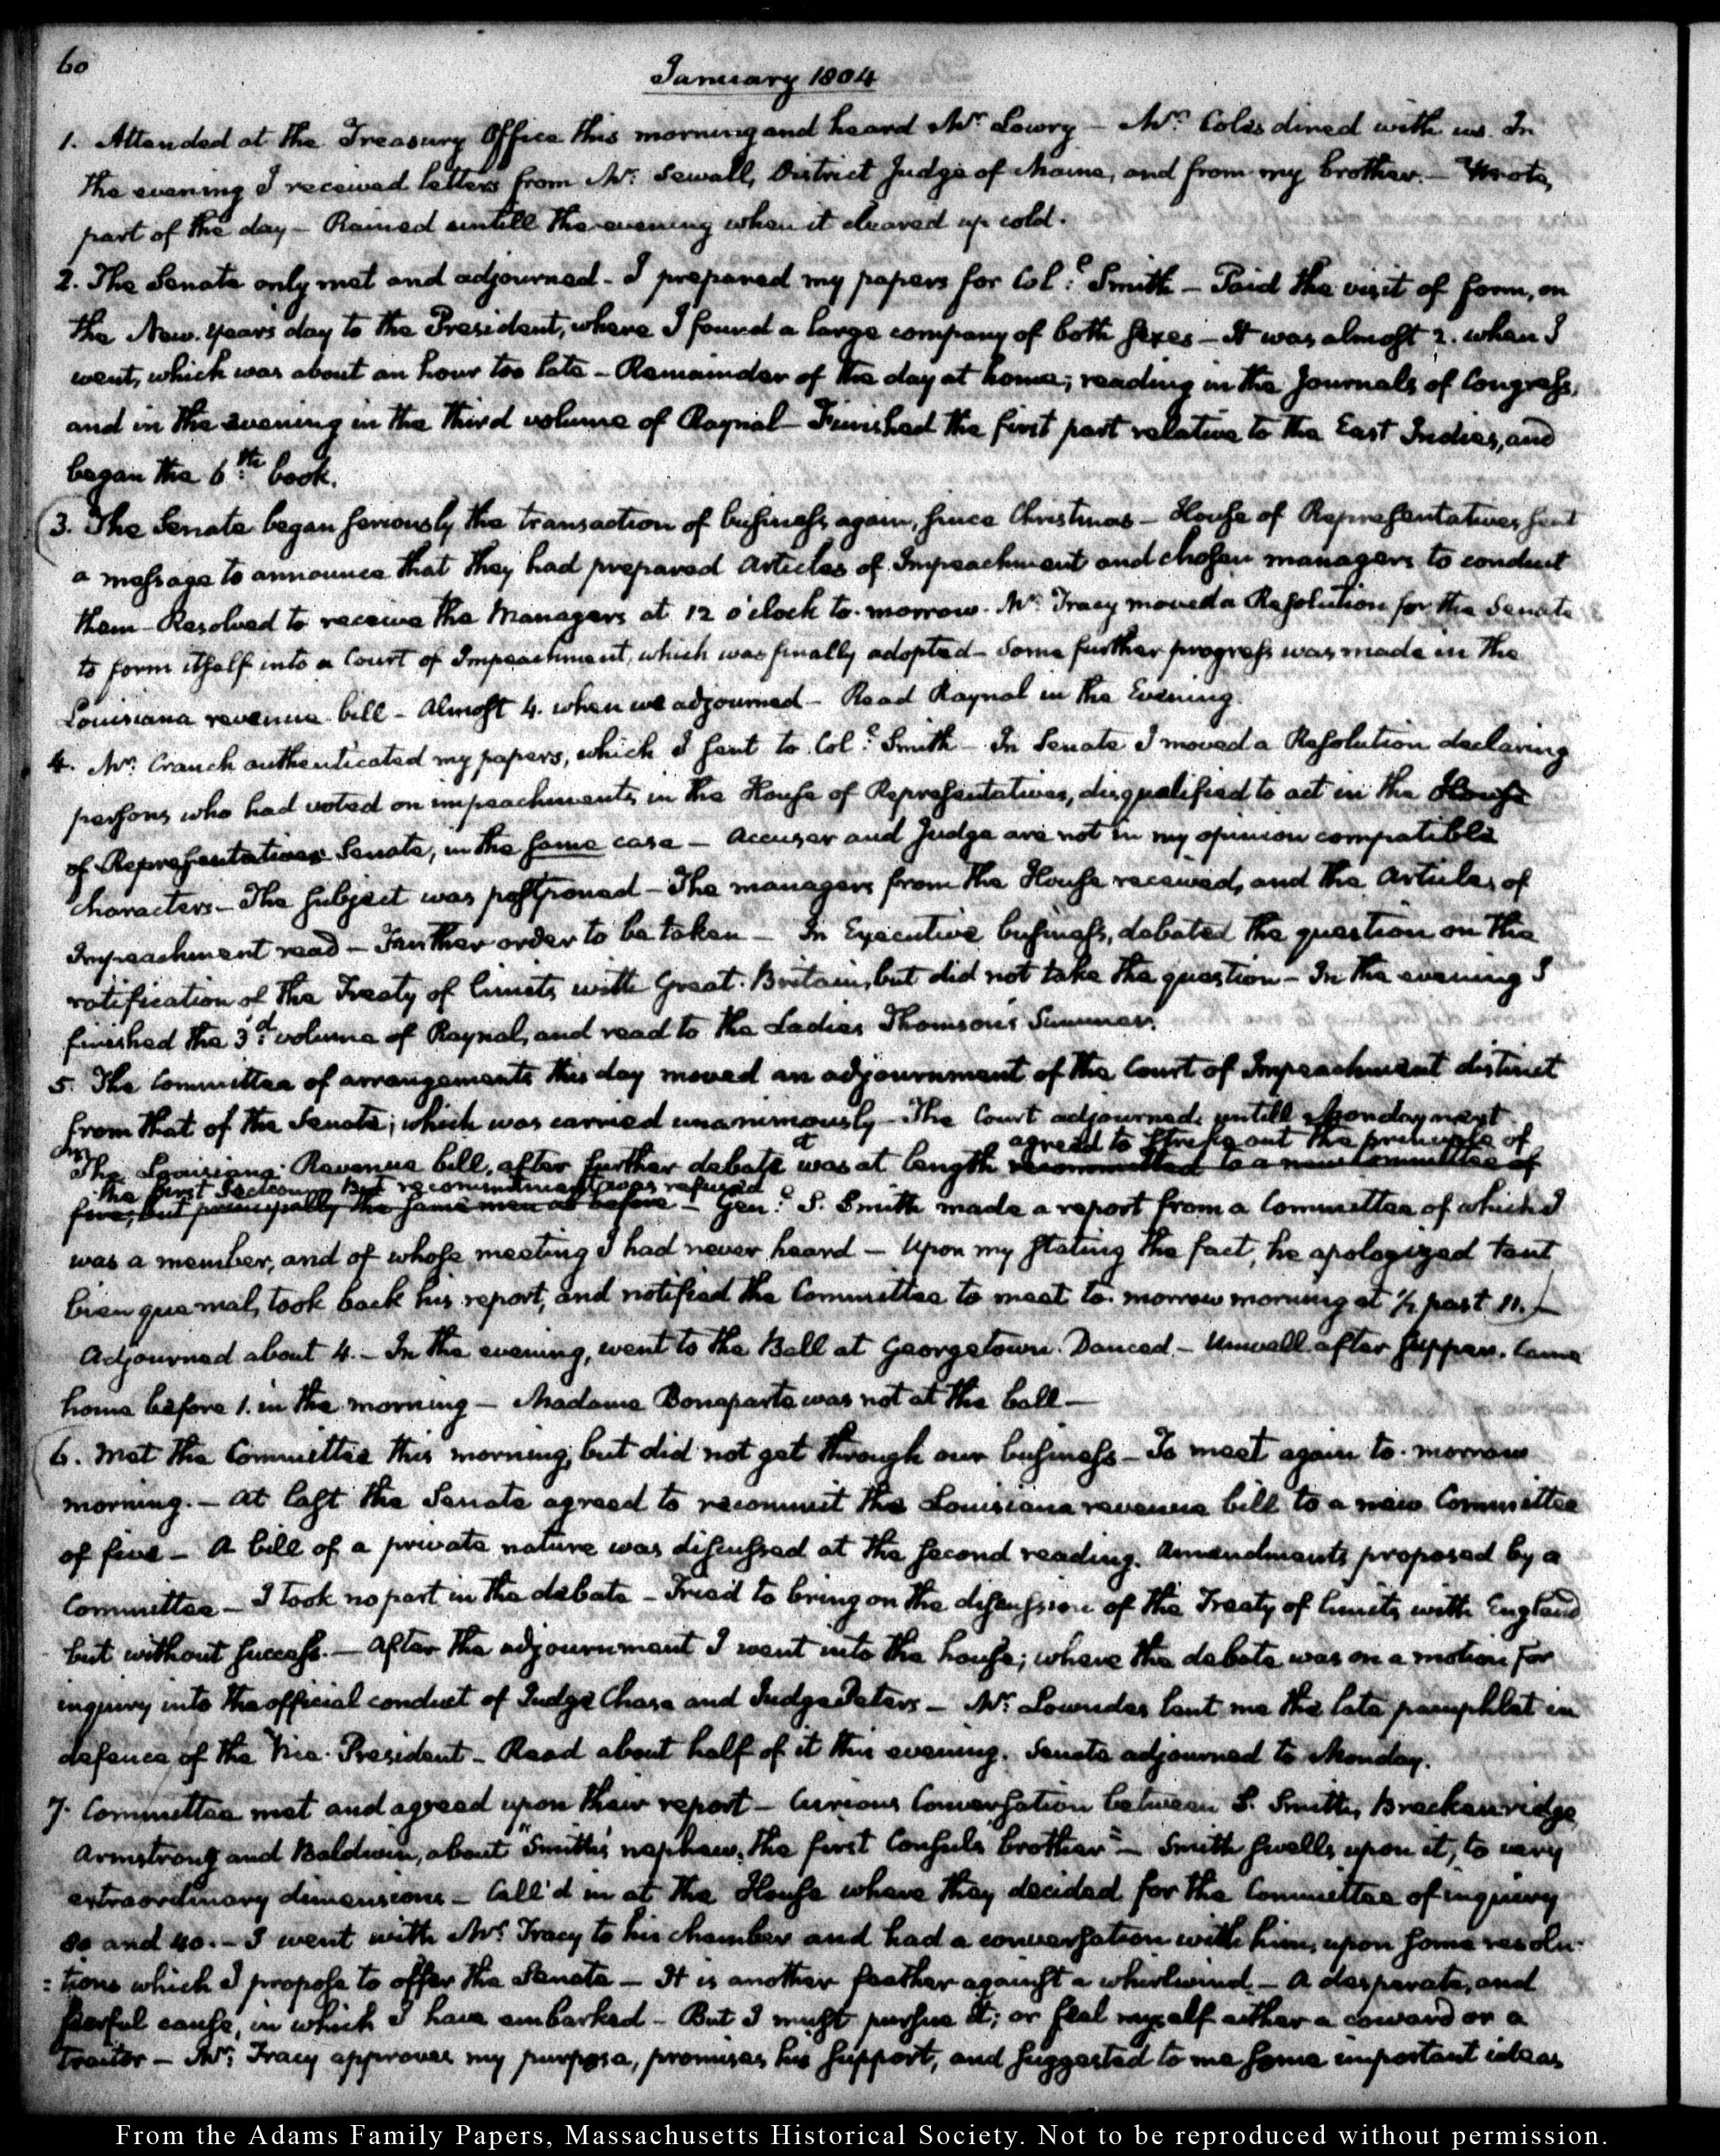 60
January 1804
1. Attended at the Treasury Office this morning and heard Mr. Lowry — Mr. Coles dined with us. In
the evening I received letters from Mr. Sewall, District Judge of Maine, and from my brother. — Wrote,
part of the day — Rained untill the evening when it cleared up cold.
2. The Senate only met and adjourned — I prepared my papers for Col.l Smith — Paid the visit of form, on
the New-years day to the President, where I found a large company of both sexes — It was almost 2. when I
went, which was about an hour too late — Remainder of the day at home; reading in the Journals of Congress,
and in the evening in the third volume of Raynal — Finished the first part relative to the East Indies, and
began the 6th book.
3. The Senate began seriously the transaction of business again, since Christmas — House of Representatives sent
a message to announce that they had prepared Articles of Impeachment and chosen managers to conduct
them — Resolved to receive the Managers at 12 o'clock to-morrow. Mr. Tracy moved a Resolution for the Senate
to form itself into a Court of Impeachment, which was finally adopted — Some further progress was made in the
Louisiana revenue bill — Almost 4. when we adjourned — Read Raynal in the Evening.
4. Mr. Cranch authenticated my papers, which I sent to Col.l Smith — In Senate I moved a Resolution declaring
persons who had voted on impeachments in the House of Representatives, disqualified to act in the House
of Representatives Senate, in the same case — Accuser and Judge are not in my opinion compatible
characters — The subject was postponed — The managers from the House received, and the Articles of
Impeachment read — Further order to be taken — In Executive business, debated the question on the
ratification of the Treaty of limits with Great-Britain, but did not take the question — In the evening I
finished the 3d volume of Raynal, and read to the Ladies Thomson's Summer.
5. The Committee of arrangements this day moved an adjournment of the Court of Impeachment distinct
from that of the Senate; which was carried unanimously — The Court adjourned untill Monday next.
agreed to strike out the principle of
On The Louisiana Revenue bill, after further debate it was at length recommitted to a new Committee of
the first Section — But recommitment was refused
five; but principally the same men as before — Gen.l S. Smith made a report from a Committee of which I
was a member, and of whose meeting I had never heard — Upon my stating the fact, he apologized tant
bien que mal, took back his report, and notified the Committee to meet to-morrow morning at ½ past 11. —
Adjourned about 4. — In the evening, went to the Ball at Georgetown. Danced — Unwell after supper. Came
home before 1. in the morning — Madame Bonaparte was not at the ball —
6. Met the Committee this morning, but did not get through our business — To meet again to-morrow
morning. — At last the Senate agreed to recommit the Louisiana revenue bill to a new Committee
of five — A bill of a private nature was discussed at the second reading. Amendments proposed by a
Committee — I took no part in the debate — Tried to bring on the discussion of the Treaty of limits with England
but without success. — After the adjournment I went into the house; where the debate was on a motion for
inquiry into the official conduct of Judge Chase and Judge Peters — Mr. Lowndes lent me the late pamphlet in
defence of the Vice-President — Read about half of it this evening. Senate adjourned to Monday.
7. Committee met and agreed upon their report — Curious Conversation between S. Smith, Breckenridge,
Armstrong and Baldwin, about "Smith's nephew, the first Consul's brother" — Smith swells upon it, to very
extraordinary dimensions — Call'd in at the House where they decided for the Committee of inquiry
80 and 40. — I went with Mr. Tracy to his chamber and had a conversation with him, upon some resolu-
:tions which I propose to offer the Senate — It is another feather against a whirlwind — A desperate, and
fearful cause, in which I have embarked — But I must pursue it; or feel myself either a coward or a
traitor — Mr. Tracy approves my purpose, promises his support, and suggested to me some important ideas
From the Adams Family Papers, Massachusetts Historical Society. Not to be reproduced without permission.